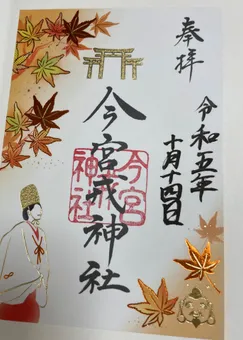 奉拝
令和五年
十月十四日
今宮戎神社
今宮戎神社